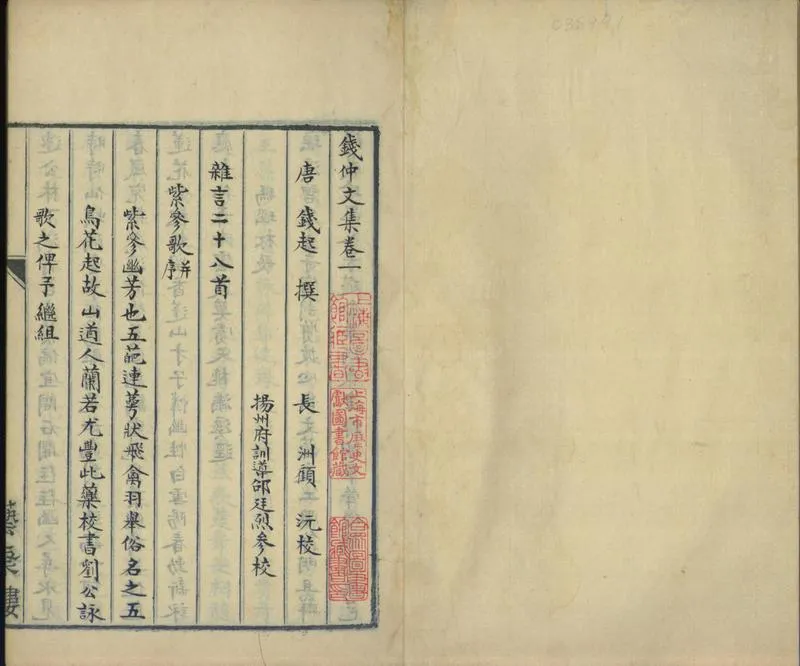 錢仲文集卷一
唐 錢起 撰 長洲顧 沅校
揚州府訓導邵廷烈參校
雜言二十八首
紫參歌并序
紫參幽芳也五葩連萼狀飛禽羽舉俗名之五
鳥花起故山道人蘭若尤豐此藥校書劉公詠
歌之俾予繼組
上海圖書館藏書
上海市歷史文獻圖書館藏
合眾圖書館藏書印